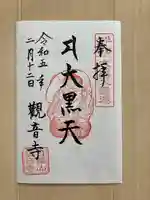 奉拝
大黒天
観音寺
令和五年
二月十二日